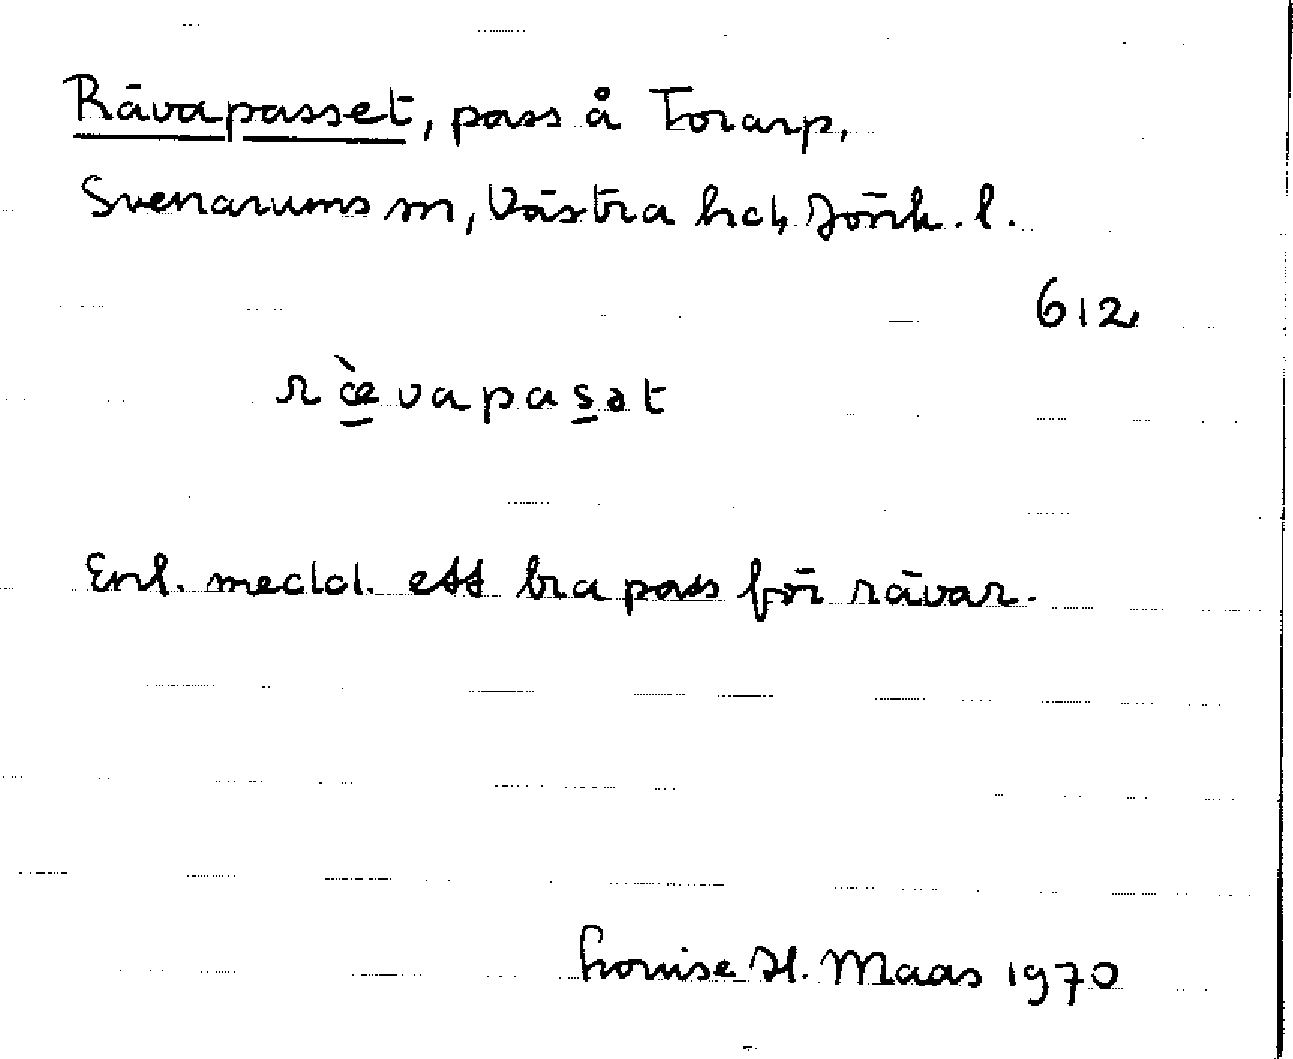 Rävapasset, pass å Torarp,
Svenarums sn, Västra hd, Jönk. l.
612
ræ̀vapasət
Enl. medd. ett bra pass för rävar.
Louise H. Maas 1970